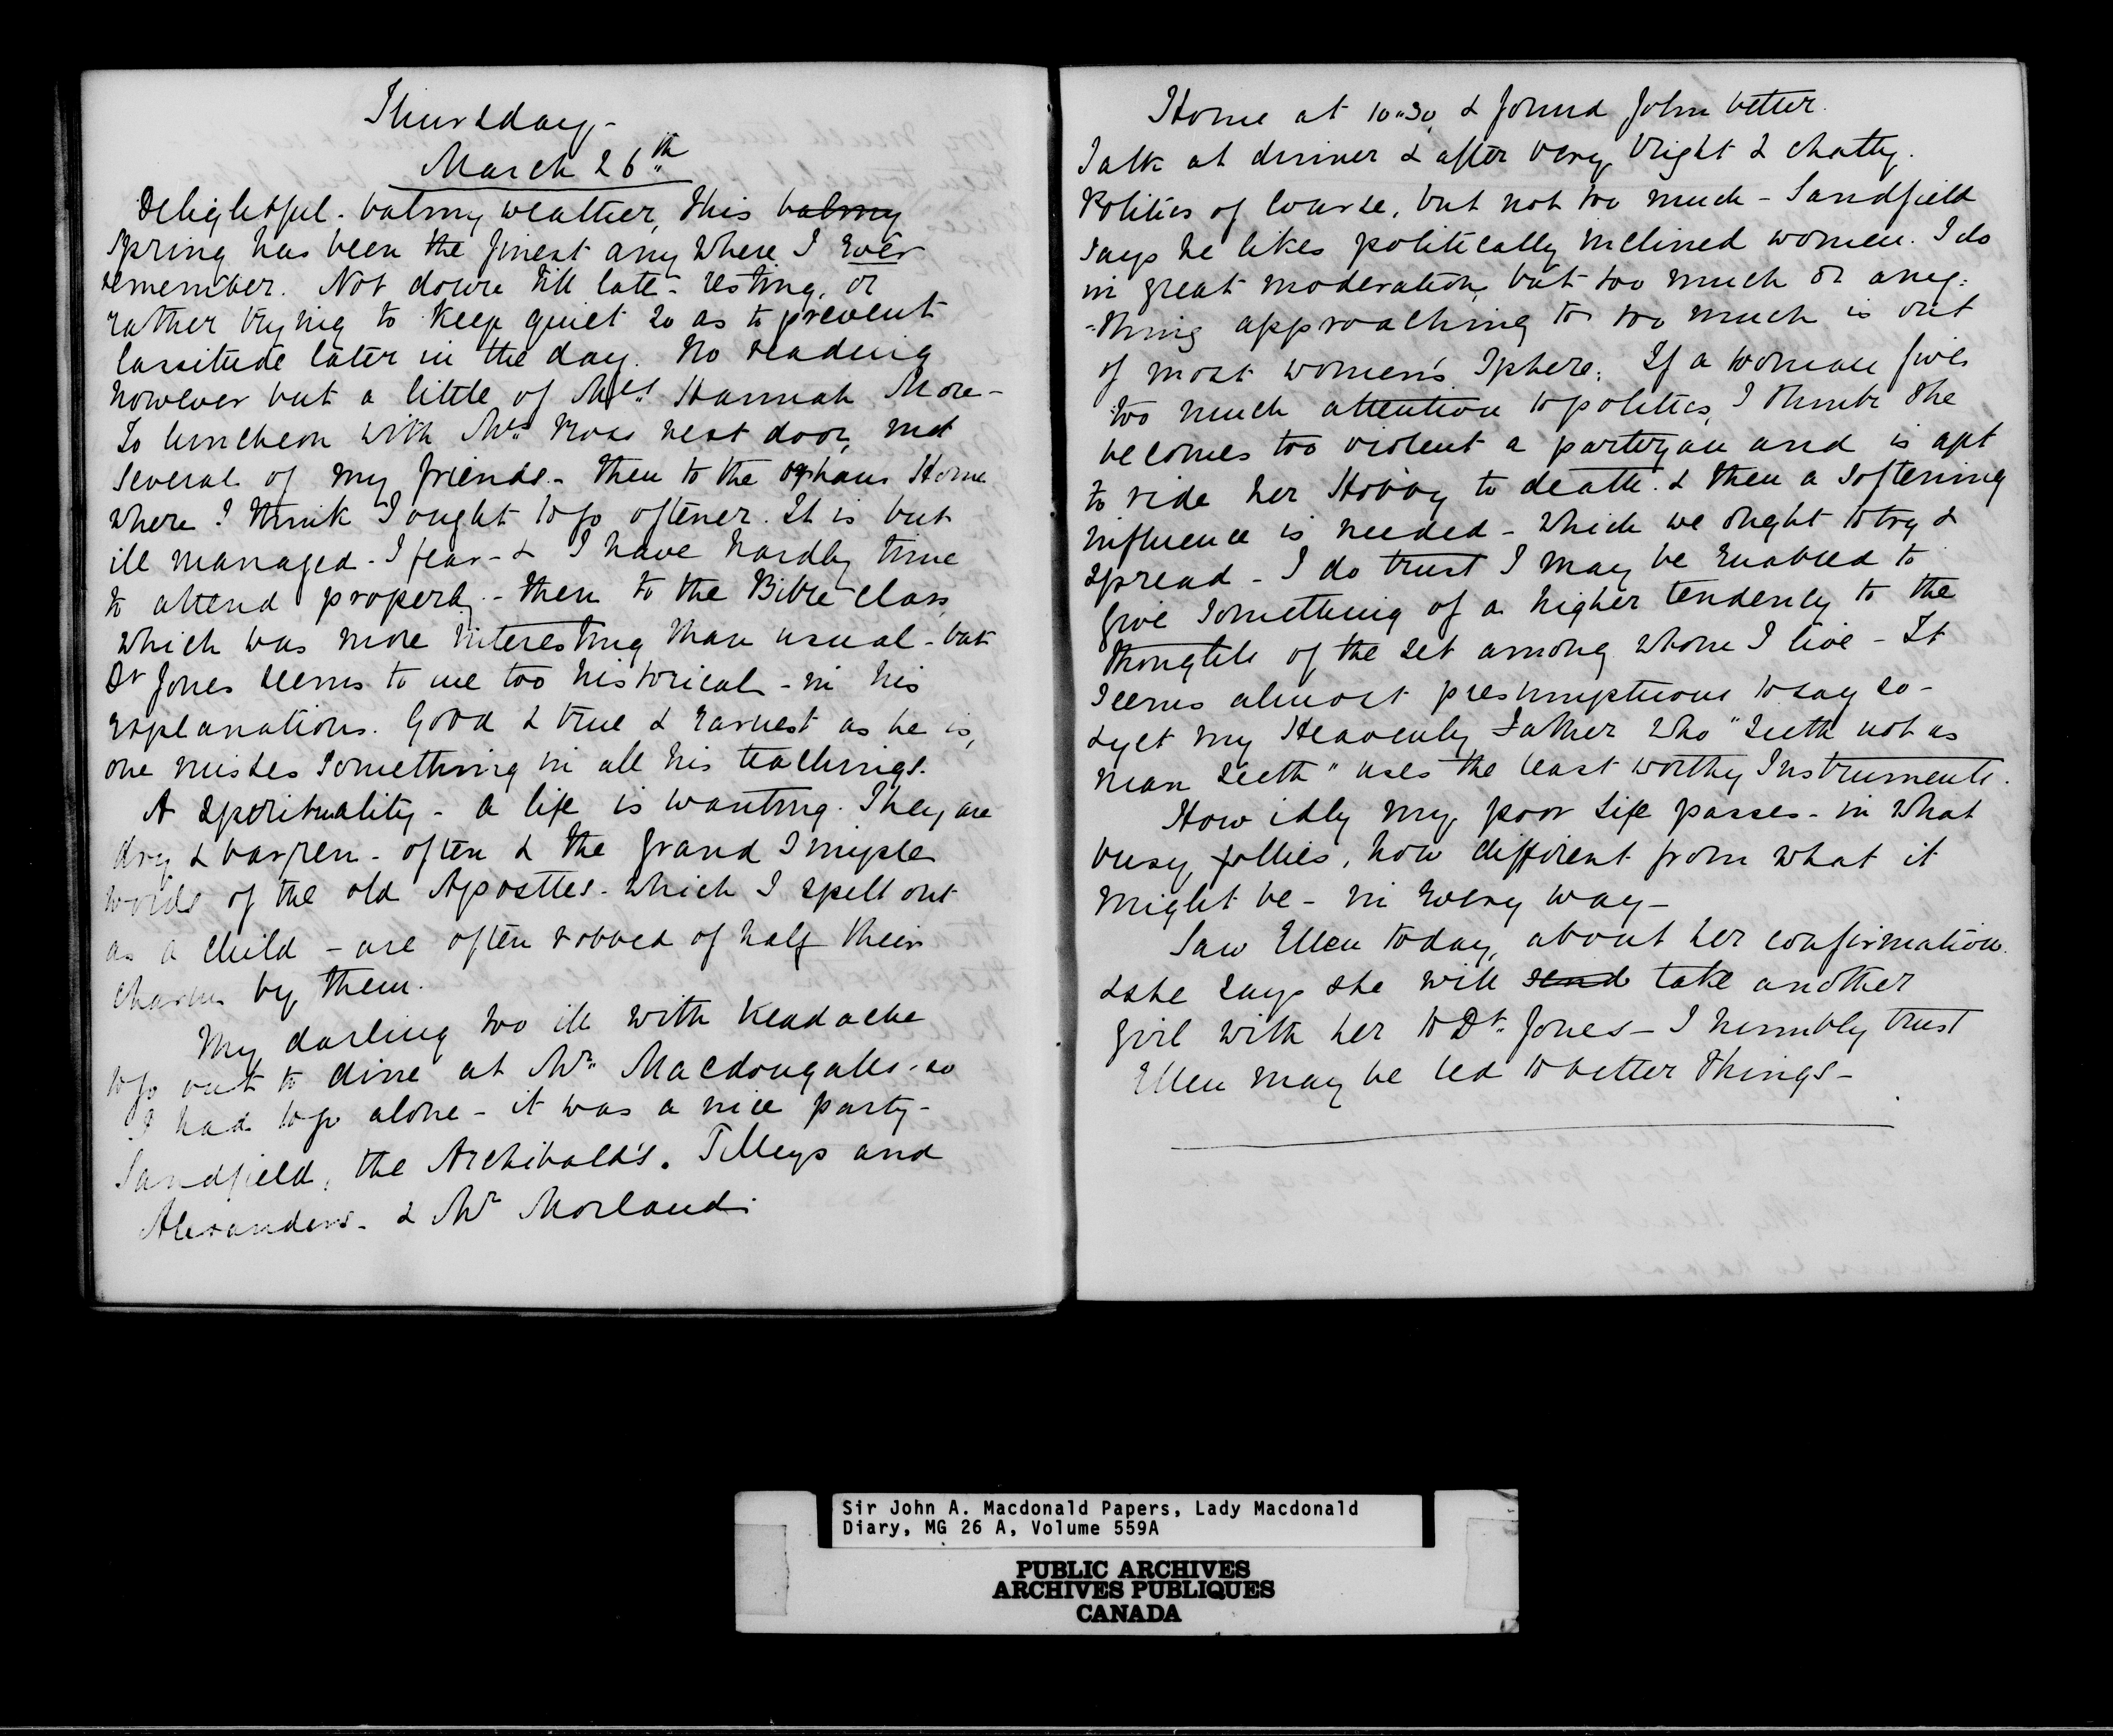 Thursday -
March 26th
Delightful - balmy weather, this balmy
Spring has been the finest any where I ever
remember. Not down till late - resting, or
rather trying to keep quiet so as to prevent
lassitude later in the day. No reading
however but a little of Mrs. Hannah More -
To luncheon with Mrs. Ross next door, met
several of my friends. - Then to the orphans Home
where I think I ought to go oftener. It is but
ill managed - I fear - & I have hardly time
to attend properly. - Then to the Bible class,
which was more interesting than usual - but
Dr Jones seems to me too historical - in his
explanations. Good & true & earnest as he is,
one misses something in all his teachings.
A spirituality - a life is wanting. They are
dry & barren - often & the grand simple
words of the old Apostles - which I spelt out
as a child - are often robbed of half their
charm by them.
My darling too ill with headache
to go out to dine at Mr. Macdougalls - so
I had to go alone - it was a nice party -
Sandfield, the Archibald's. Tilleys and
Alexanders - & Mr Morland.
Home at 10.30, & found John better.
Talk at dinner & after very bright & chatty.
Politics of course, but not too much - Sandfield
says he likes politically inclined women. I do
in great moderation, but too much or any-
-thing approaching to too much is out
of most women's sphere. If a woman gives
too much attention to politics, I think she
becomes too violent a partizan and is apt
to ride her Hobby to death. & then a softening
influence is needed - which we ought to try &
spread - I do trust I may be enabled to
give something of a higher tendency to the
thoughts of the set among whom I live - It
seems almost presumptuous to say so -
& yet my Heavenly Father Who "seeth not as
man seeth" uses the least worthy Instruments.
How idly my poor life passes - in what
busy follies, how different from what it
might be - in every way -
Saw Ellen today, about her confirmation.
& she says she will send take another
girl with her to Dr. Jones - I humbly trust
Ellen may be led to better things -
Sir John A. Macdonald Papers, Lady Macdonald
Diary, MG 26 A, Volume 559A
PUBLIC ARCHIVES
ARCHIVES PUBLIQUES
CANADA